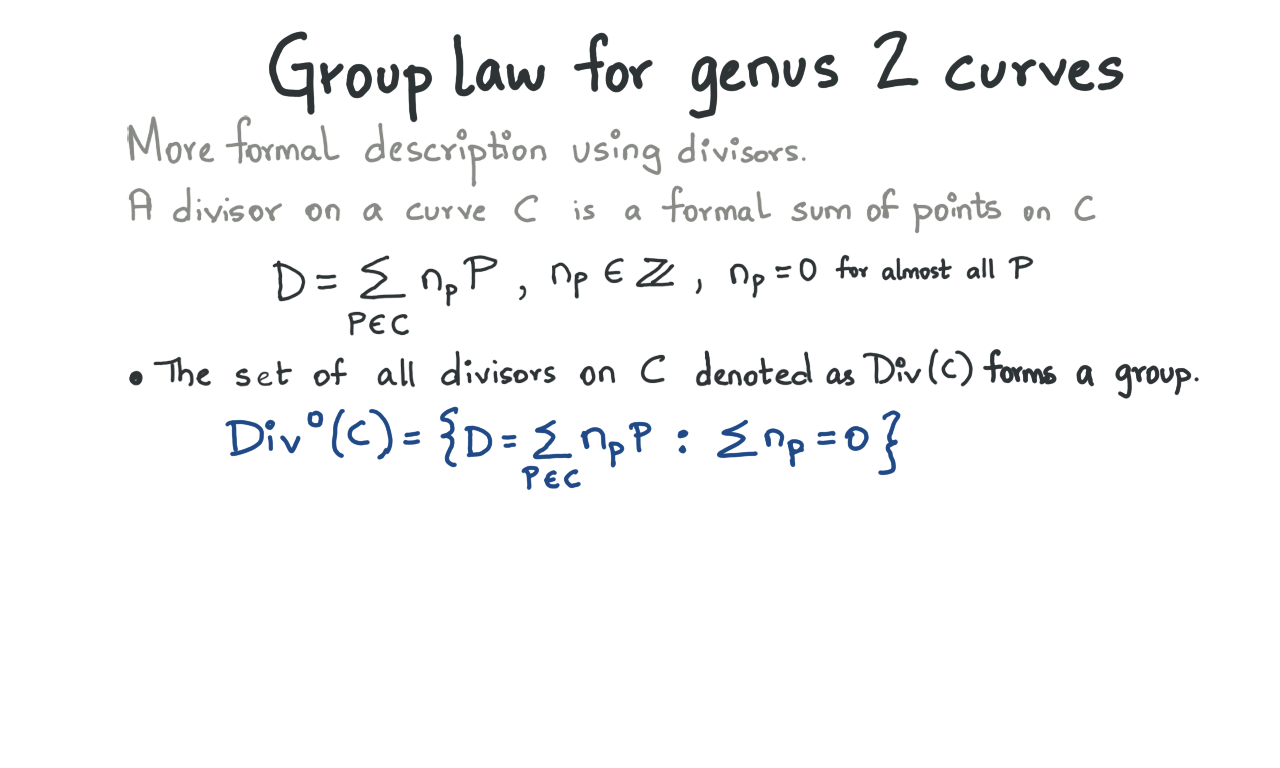 Group law for genus 2 curves
More formal description using divisors.
A divisor on a curve C is a formal sum of points on C
D = ∑ n_p P , n_p ∈ ℤ , n_p = 0 for almost all P
P∈C
• The set of all divisors on C denoted as Div(C) forms a group.
Div⁰(C) = {D = ∑ n_p P : ∑ n_p = 0}
P∈C